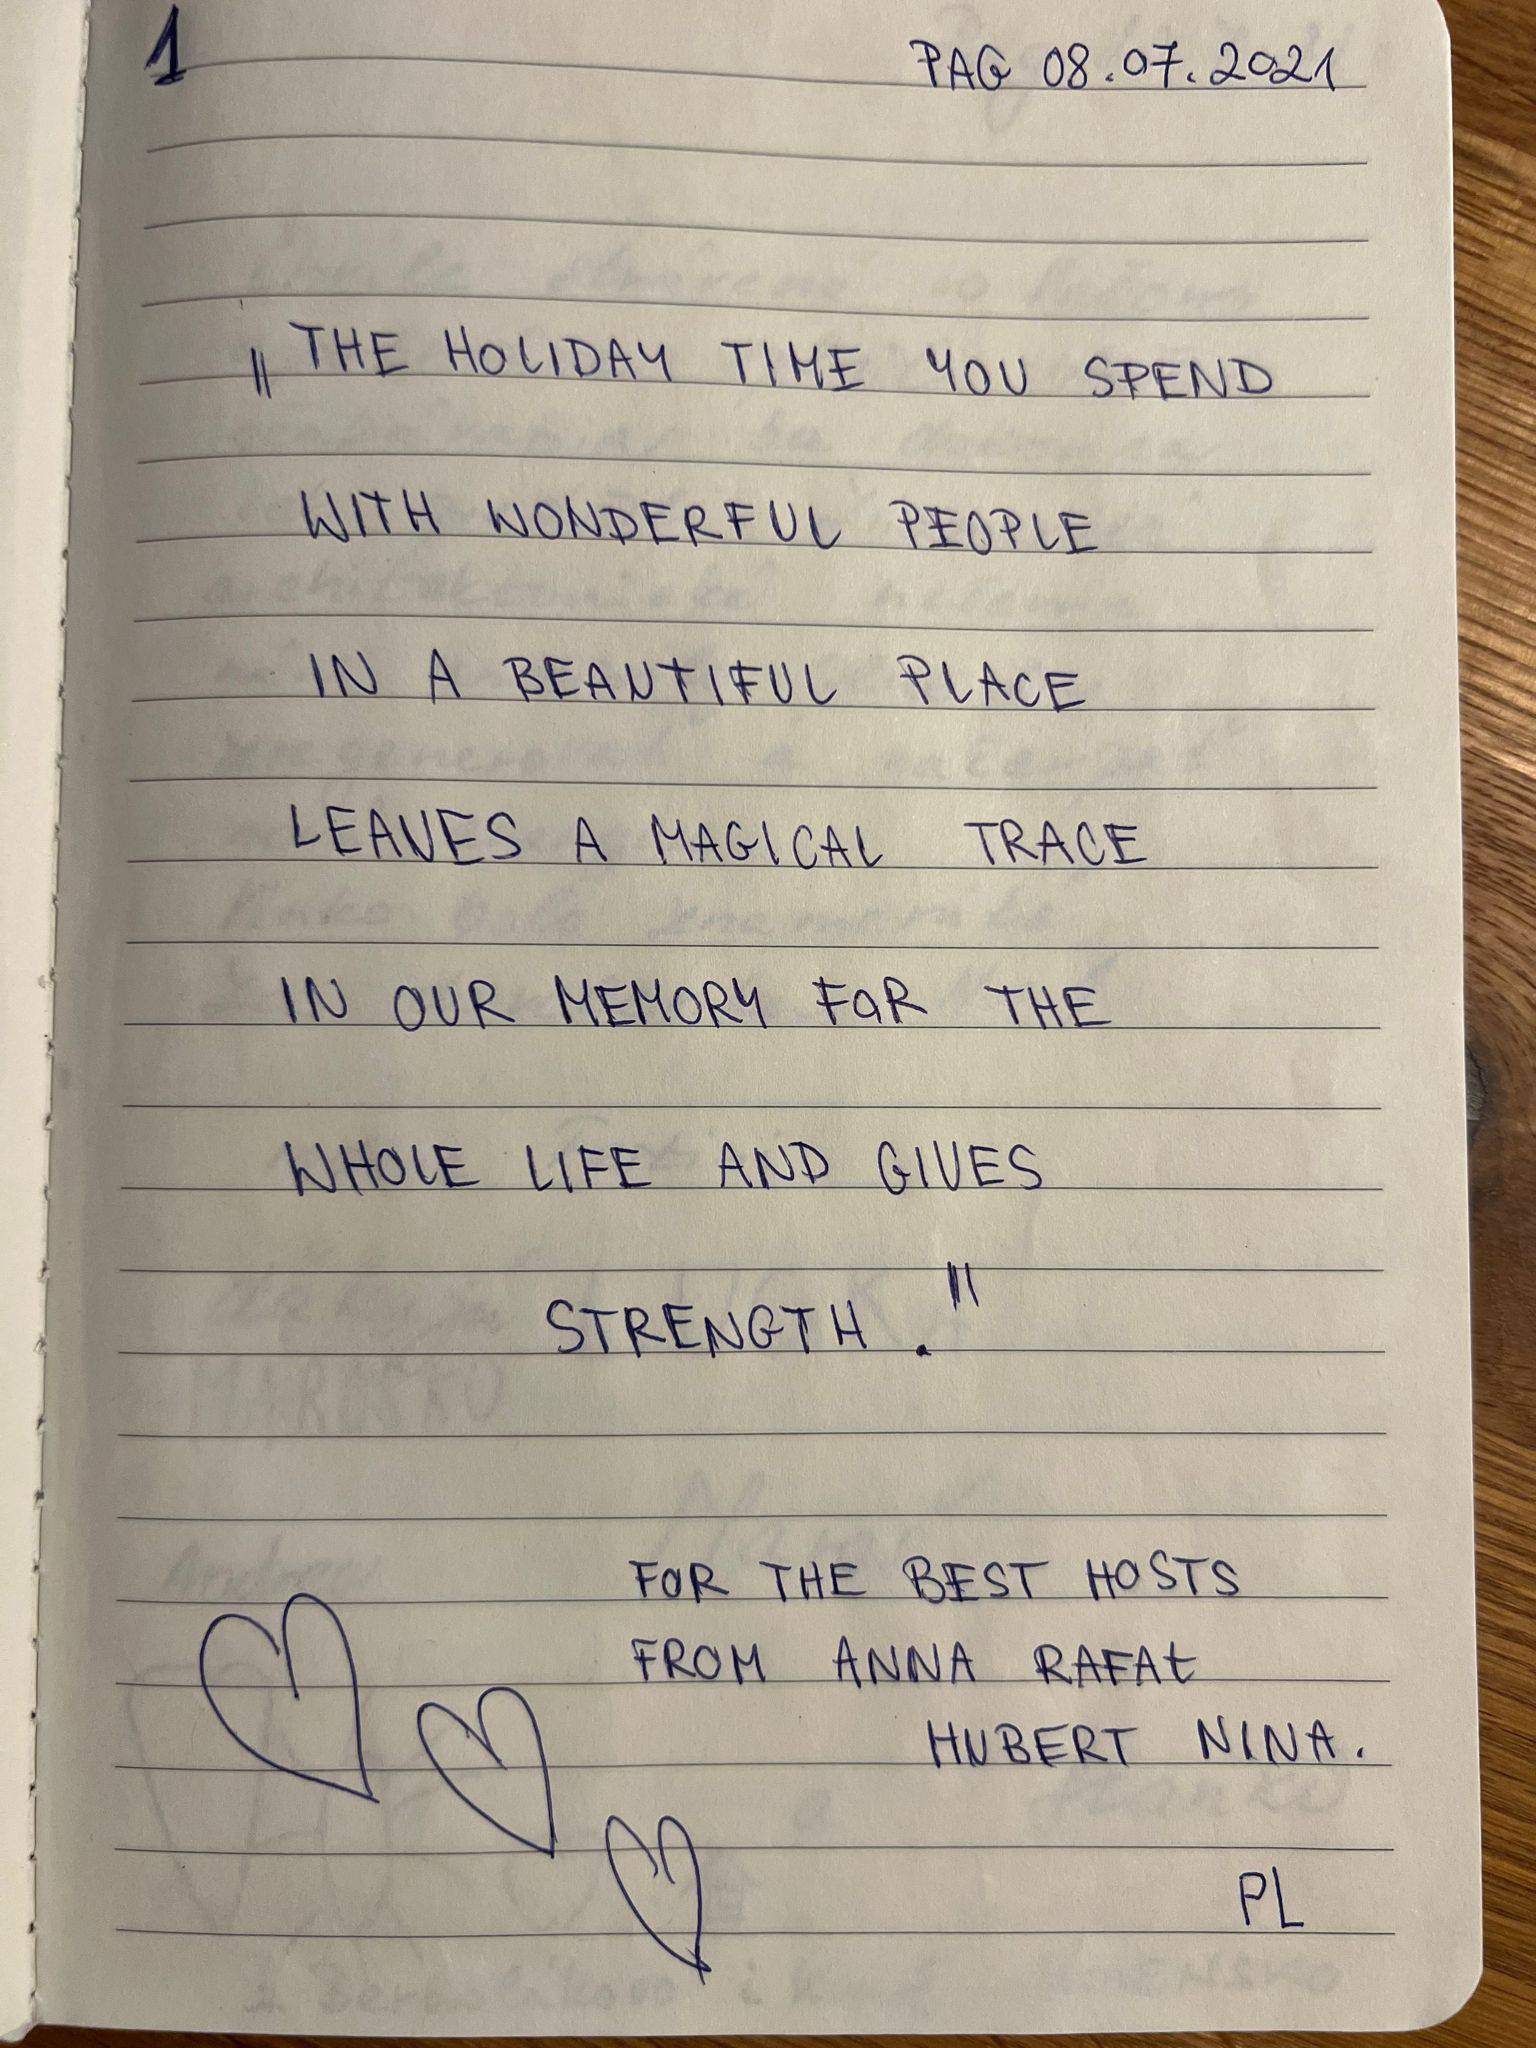 1
PAG 08.07.2021
„THE HOLIDAY TIME YOU SPEND
WITH WONDERFUL PEOPLE
IN A BEAUTIFUL PLACE
LEAVES A MAGICAL TRACE
IN OUR MEMORY FOR THE
WHOLE LIFE AND GIVES
STRENGTH."
FOR THE BEST HOSTS
FROM ANNA RAFAŁ
HUBERT NINA.
PL